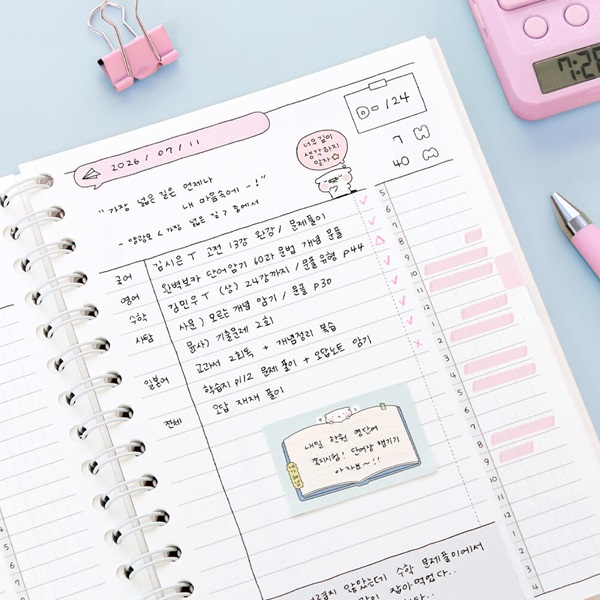 2026 / 07 / 11
D- 124
7 H
40 M
"가장 넓은 길은 언제나
내 마음속에 -!"
- 양광모 <가장 넓은 길> 중에서
너무 깊이
생각하지
말자☆
국어 김시은T 고전 13강 완강 / 문제풀이 ✓
영어 완벽보카 단어암기 60과 문법 개념 문풀 ✓
수학 김민우T (상) 24강까지 / 문풀 유형 p44 △
사탐 사문) 모르는 개념 암기 / 문풀 p30 ✓
윤사) 기출문제 2회 ✓
일본어 교과서 2회독 + 개념정리 복습 ✓
학습지 p112 문제 풀이 + 오답노트 암기 ✓
전체 오답 재재 풀이 ×
내일 학원 영단어
쪽지시험! 단어장 챙기기
아자뵤~!!
않았는데 수학 문제풀이에서
잡아먹었다..
5
6
7
8
9
10
11
12
1
2
3
4
5
6
7
8
9
10
11
12
1
2
7:28